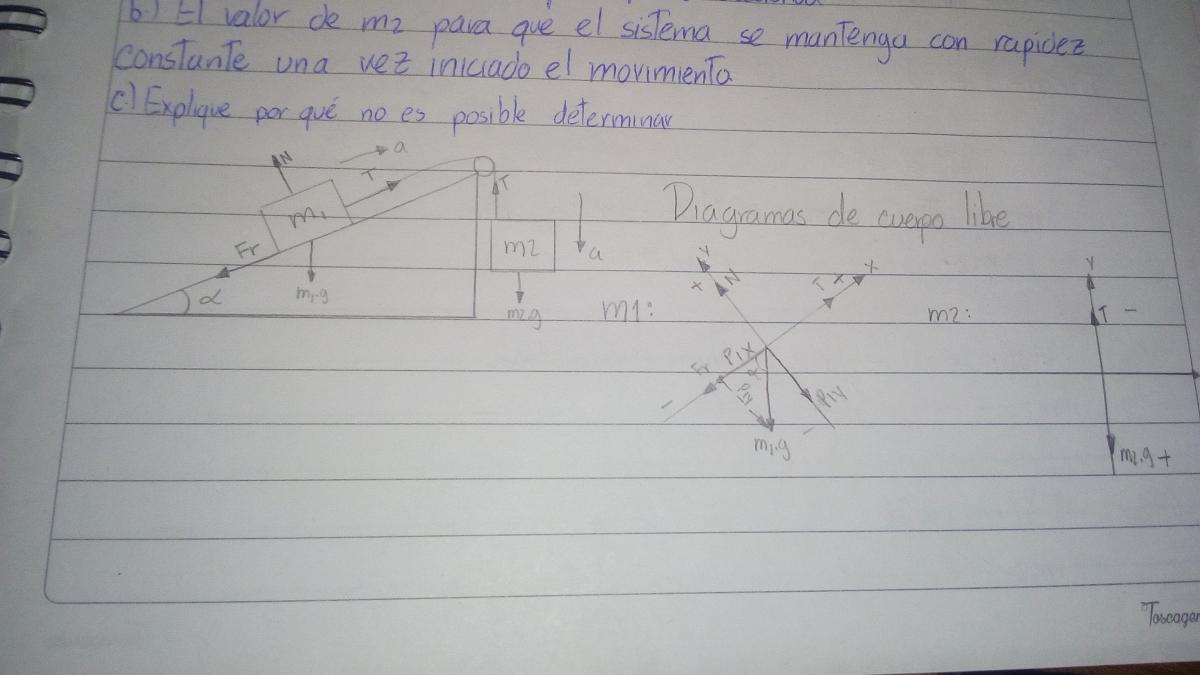 b.) El valor de m2 para que el sistema se mantenga con rapidez
constante una vez iniciado el movimiento
c.) Explique por qué no es posible determinar
N
a
T
m1
Fr
α
m1.g
T
m2
a
m2.g
Diagramas de cuerpo libre
m1:
Y
x
N
T
x
x
Fr
P1X
α
P1Y
P1Y
m1.g
m2:
Y
T -
m2.g +